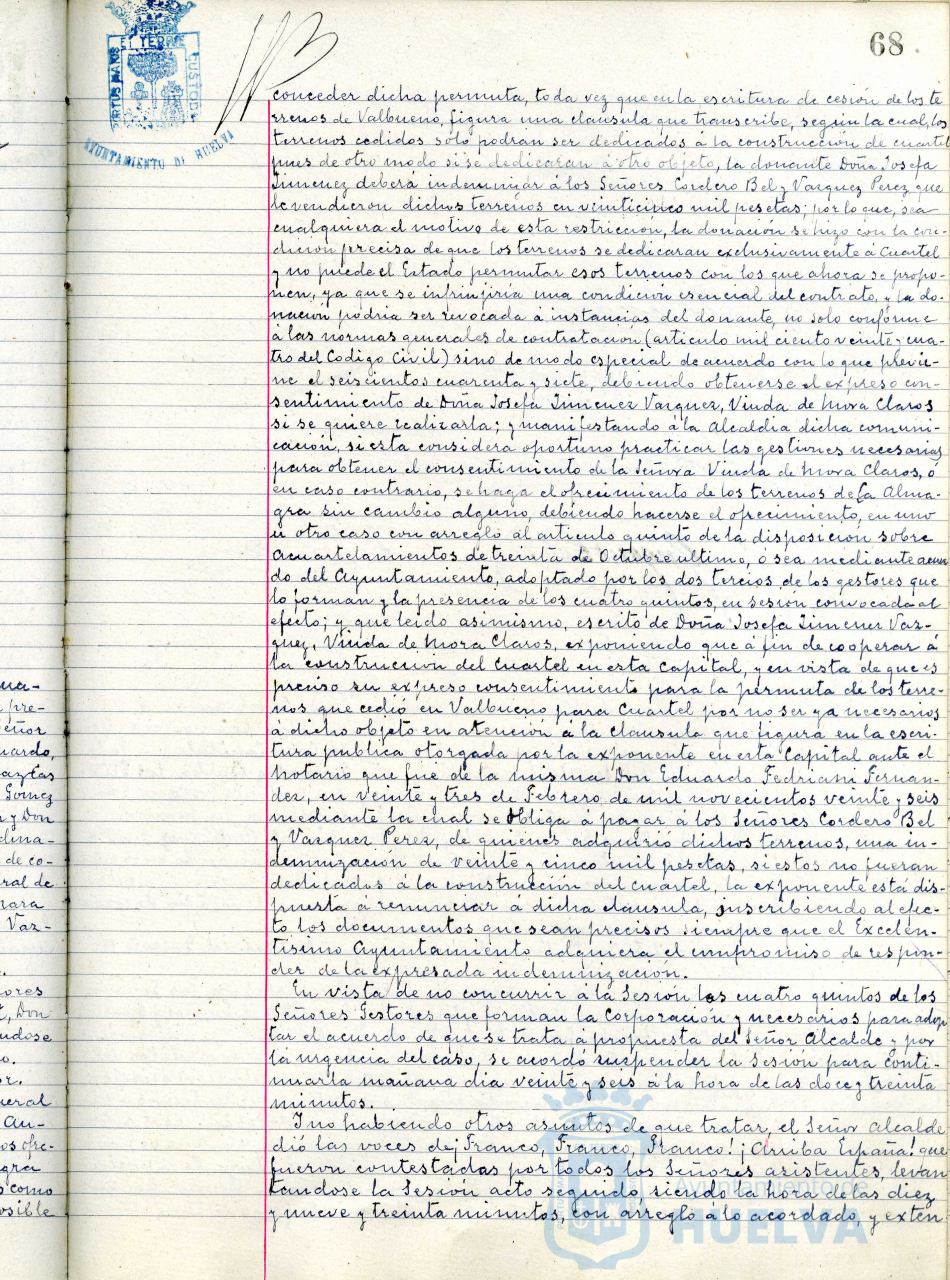 68.
PORTUS MARIS ET TERRE CUSTODIA
AYUNTAMIENTO DE HUELVA
conceder dicha permuta, toda vez que en la escritura de cesión de los te
rrenos de Valbueno, figura una clausula que transcribe, según la cual, los
terrenos cedidos solo podrán ser dedicados á la construcción de cuartel
pues de otro modo si se dedicaran á otro objeto, la donante Doña Josefa
Jimenez deberá indemnizar á los Señores Cordero Bel y Vazquez Perez que
le vendieron dichos terrenos en veinticinco mil pesetas; por lo que, sea
cualquiera el motivo de esta restricción, la donación se hizo con la con-
dición precisa de que los terrenos se dedicaran exclusivamente á Cuartel
y no puede el Estado permutar esos terrenos con los que ahora se propo-
nen, ya que se infrinjiría una condición esencial del contrato, y la do-
nación podria ser revocada á instancias del donante, no solo conforme
á las normas generales de contratación (articulo mil ciento veinte y cua-
tro del Codigo Civil) sino de modo especial de acuerdo con lo que previe-
ne el seiscientos cuarenta y siete, debiendo obtenerse el expreso con-
sentimiento de Doña Josefa Jimenez Vazquez, Viuda de Mora Claros
si se quiere realizarla; y manifestando á la Alcaldia dicha comuni-
cación, si esta considera oportuno practicar las gestiones necesarias
para obtener el consentimiento de la Señora Viuda de Mora Claros, ó
en caso contrario, se haga el ofrecimiento de los terrenos de la Alma-
gra sin cambio alguno, debiendo hacerse el ofrecimiento, en uno
ú otro caso con arreglo al articulo quinto de la disposición sobre
acuartelamientos de treinta de Octubre ultimo, ó sea mediante acuer
do del Ayuntamiento, adoptado por los dos tercios de los gestores que
lo forman y la presencia de los cuatro quintos, en sesión convocada al
efecto; y que leido asimismo, escrito de Doña Josefa Jimenez Vaz-
quez, Viuda de Mora Claros, exponiendo que á fin de cooperar á
la construcción del Cuartel en esta Capital, y en vista de que es
preciso su expreso consentimiento para la permuta de los terre-
nos que cedió en Valbueno para Cuartel por no ser ya necesarios
á dicho objeto en atención á la clausula que figura en la escri-
tura publica otorgada por la exponente en esta Capital ante el
Notario que fué de la misma Don Eduardo Fedriani Fernan-
dez, en veinte y tres de Febrero de mil novecientos veinte y seis
mediante la cual se obliga á pagar á los Señores Cordero Bel
y Vazquez Perez, de quienes adquirió dichos terrenos, una in-
demnización de veinte y cinco mil pesetas, si estos no fueran
dedicados á la construcción del cuartel, la exponente está dis-
puesta á renunciar á dicha clausula, inscribiendo al efec-
to los documentos que sean precisos siempre que el Excelen-
tisimo Ayuntamiento adquiera el compromiso de respon-
der de la expresada indemnización.
En vista de no concurrir á la Sesión los cuatro quintos de los
Señores Gestores que forman la Corporación y necesarios para adop
tar el acuerdo de que se trata á propuesta del Señor Alcalde y por
la urgencia del caso, se acordó suspender la Sesión para conti-
nuarla mañana dia veinte y seis á la hora de las doce y treinta
minutos.
Y no habiendo otros asuntos de que tratar, el Señor Alcalde
dió las voces de ¡Franco, Franco, Franco! ¡Arriba España! que
fueron contestadas por todos los Señores asistentes, levan
tandose la Sesión acto seguido, siendo la hora de las diez
y nueve y treinta minutos, con arreglo á lo acordado, y exten
Ayuntamiento de
HUELVA
ua-
pre-
eñor
uardo,
Gomez
y Don
dina-
de co-
ral de
para
Vaz-
ores
, Don
ndose
o.
or.
eral
Au-
os ofre-
gra
como
osible